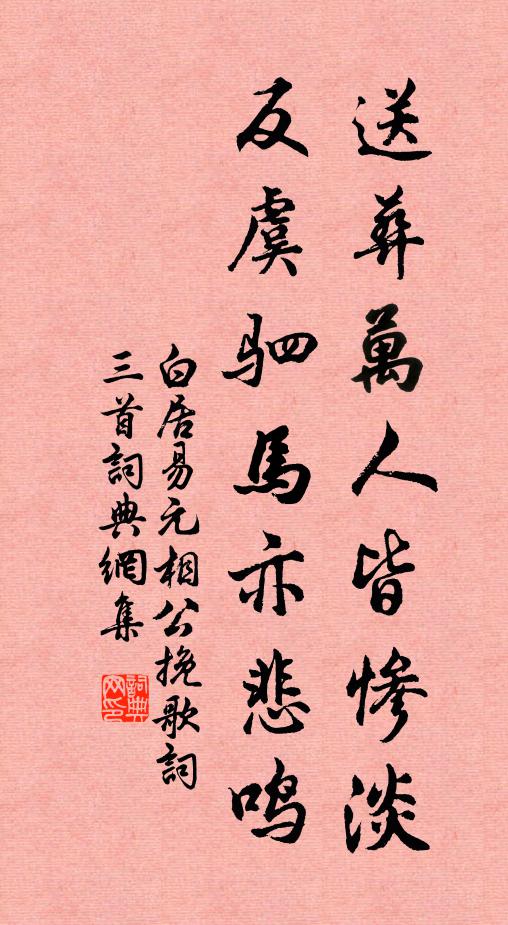 送葬萬人皆慘淡
反虞驷馬亦悲鸣
白居易元相公挽歌詞
三首詞典網集
詞典网印